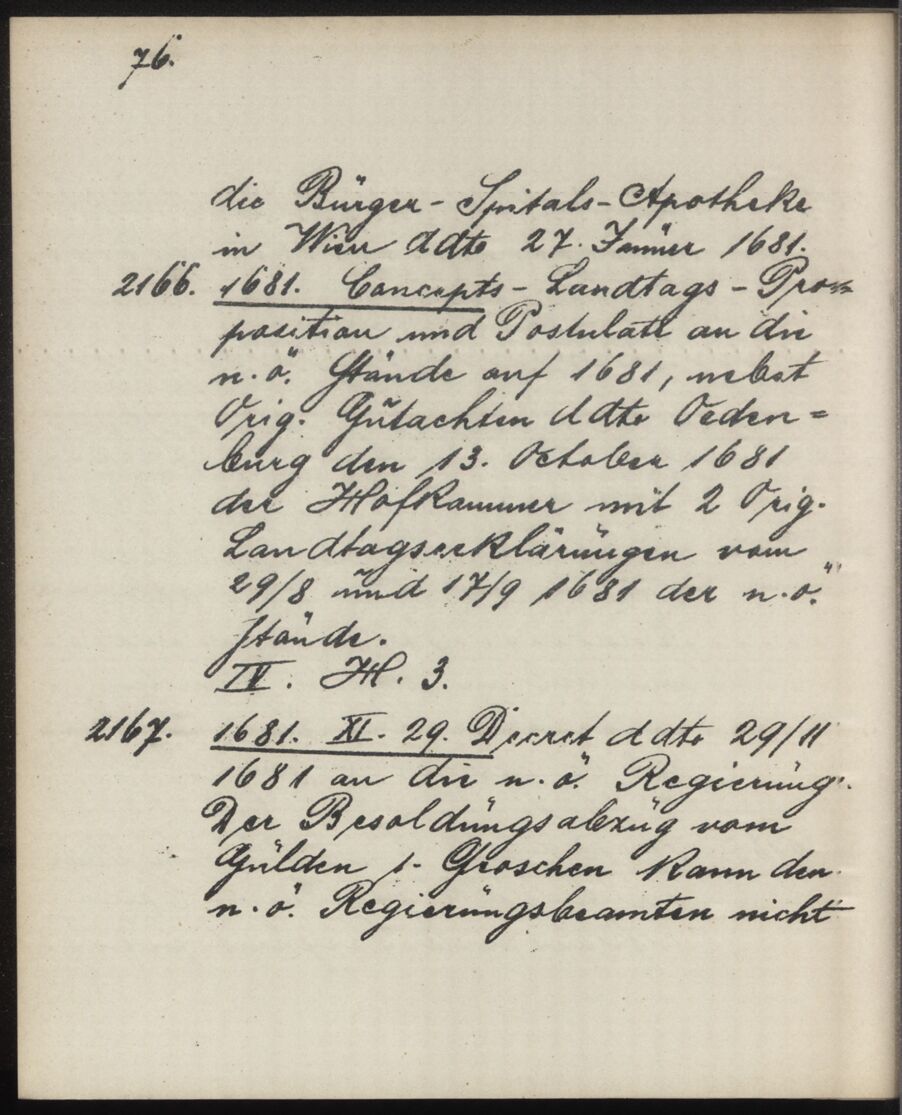 76.
die Bürger-Spitals-Apotheke
in Wien ddto 27. Jänner 1681.
2166. 1681. Concepts-Landtags-Pro=
position und Postulate an die
n.ö. Stände auf 1681, nebst
Orig. Gutachten ddto Oeden=
burg den 13. October 1681
der Hofkammer mit 2 Orig.
Landtagserklärungen vom
29/8 und 17/9 1681 der n.ö.
Stände.
IV. H. 3.
2167. 1681. XI. 29. Decret ddto 29/11
1681 an die n.ö. Regierung.
Der Besoldungsabzug vom
Gulden 1 Groschen kann den
n.ö. Regierungsbeamten nicht